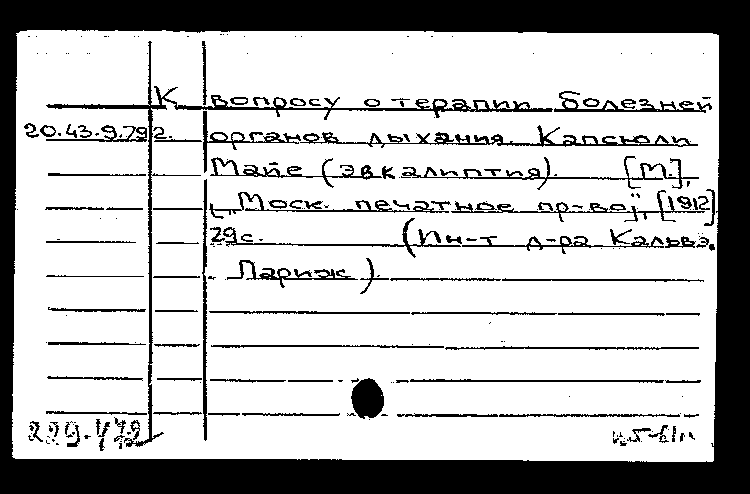 К вопросу о терапии болезней
20.43.9.792. органов дыхания. Капсюли
Майе (эвкалиптия). [М.],
["Моск. печатное пр-во]", [1912]
29с. (Ин-т д-ра Кальвэ.
Париж).
229.472